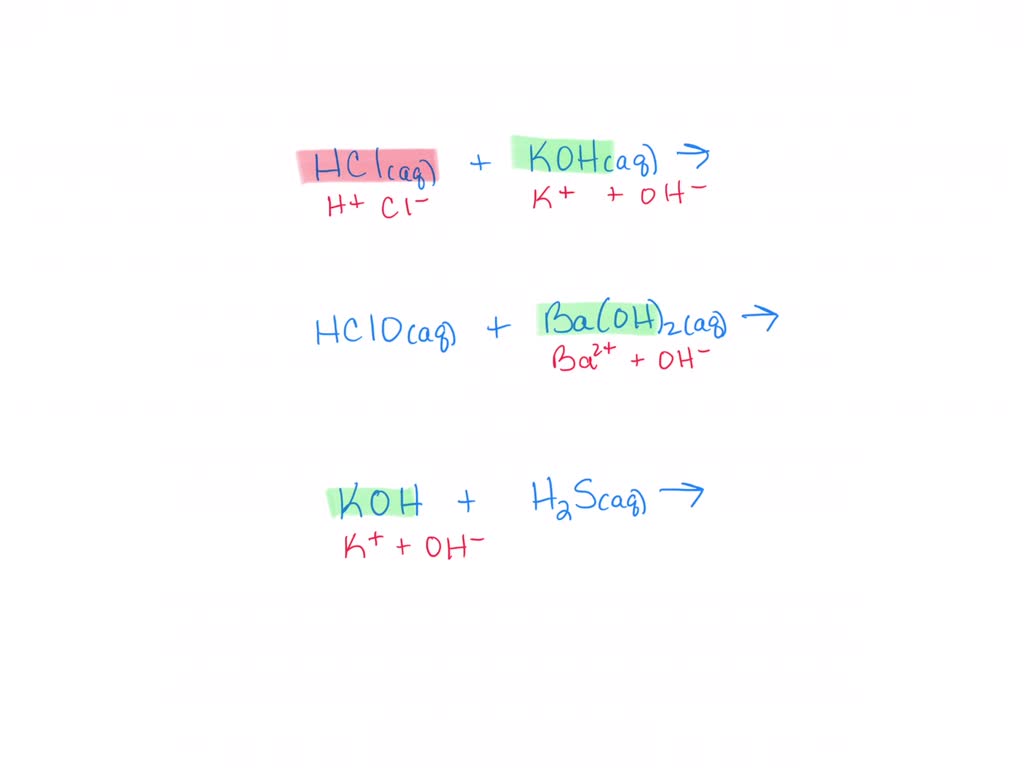 HCl(aq) + KOH(aq) →
H+ Cl⁻ K+ + OH⁻
HClO(aq) + Ba(OH)₂(aq) →
Ba²⁺ + OH⁻
KOH + H₂S(aq) →
K⁺ + OH⁻